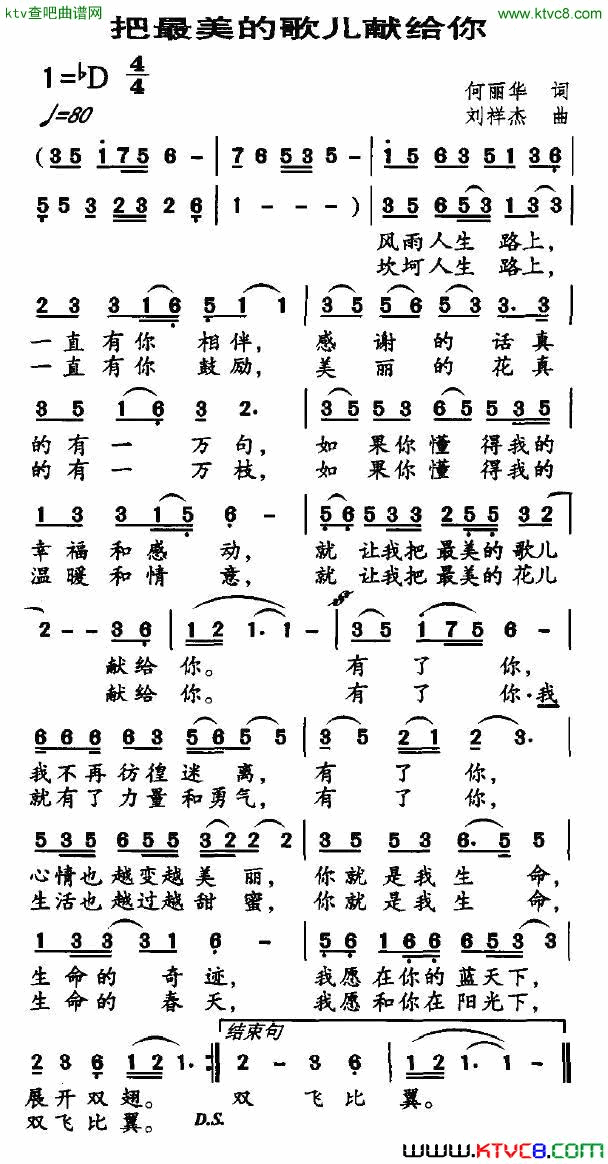 ktv查吧曲谱网
www.ktvc8.com
把最美的歌儿献给你
1=♭D 4/4
♩=80
何丽华 词
刘祥杰 曲
(35 175 6 - | 76 535 - | 15 635 5136
55 3 23 26 | 1 - - - ) | 35 6 53 1 33
风雨人生 路上,
坎坷人生 路上,
2 3 3 16 51 1 | 35 56 53 3. 3
一直有你 相伴, 感谢的话真
一直有你 鼓励, 美丽的花真
35 16 3 2. | 35 53 65 535
的有一 万句, 如果你懂 得我的
的有一 万枝, 如果你懂 得我的
13 3 15 6 - | 56 533 555 32
幸福和感 动, 就让我把最美的歌儿
温暖和情 意, 就让我把最美的花儿
2 - - 36 | 12 1. 1 - | 35 175 6 -
献给你。 有了你,
献给你。 有了你.我
666 63 565 5 | 35 21 2 3.
我不再彷徨迷 离, 有了你,
就有了力量和勇气, 有了你,
535 655 322 2 | 35 53 6. 5 5
心情也越变越美丽, 你就是我生 命,
生活也越过越甜蜜, 你就是我生 命,
1 33 31 6 - | 56 166 653 3
生命的 奇迹, 我愿在你的蓝天下,
生命的 春天, 我愿和你在阳光下,
结束句
2 3 6 121. :‖ 2 - 3 6 | 121. 1 - ‖
展开双翅。 双 飞比翼。
双飞比翼。 D.S.
www.KTVC8.com